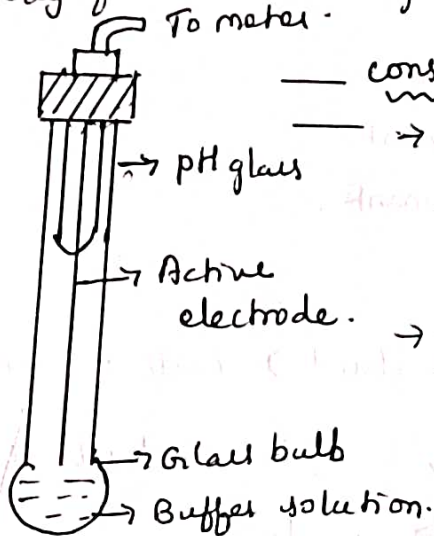 To meter.
cons
→ pH glass
→ Active
electrode.
→ Glass bulb
→ Buffer solution.